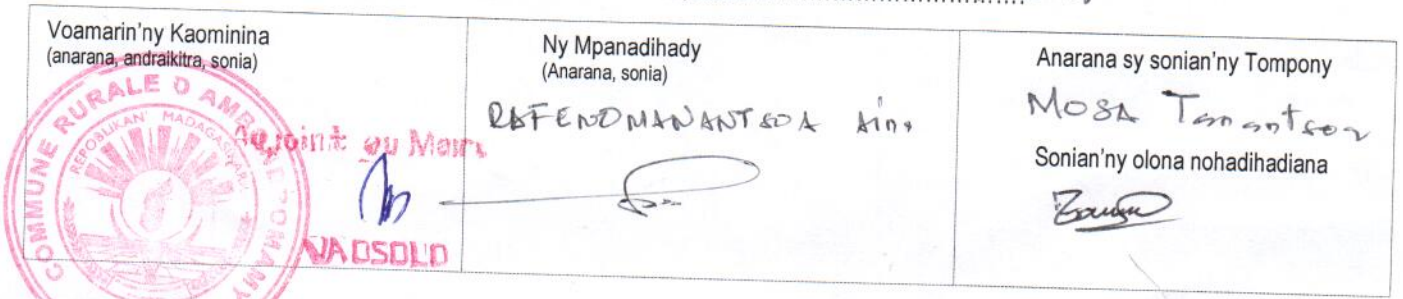 Voamarin'ny Kaominina
(anarana, andraikitra, sonia)
COMMUNE RURALE D
REPOBLIKAN' MADAGASIKARA
Adjoint au Maire
VAOSOLO
Ny Mpanadihady
(Anarana, sonia)
RAFENOMANANTSOA Aina
Anarana sy sonian'ny Tompony
MOSA Tanantsoa
Sonian'ny olona nohadihadiana